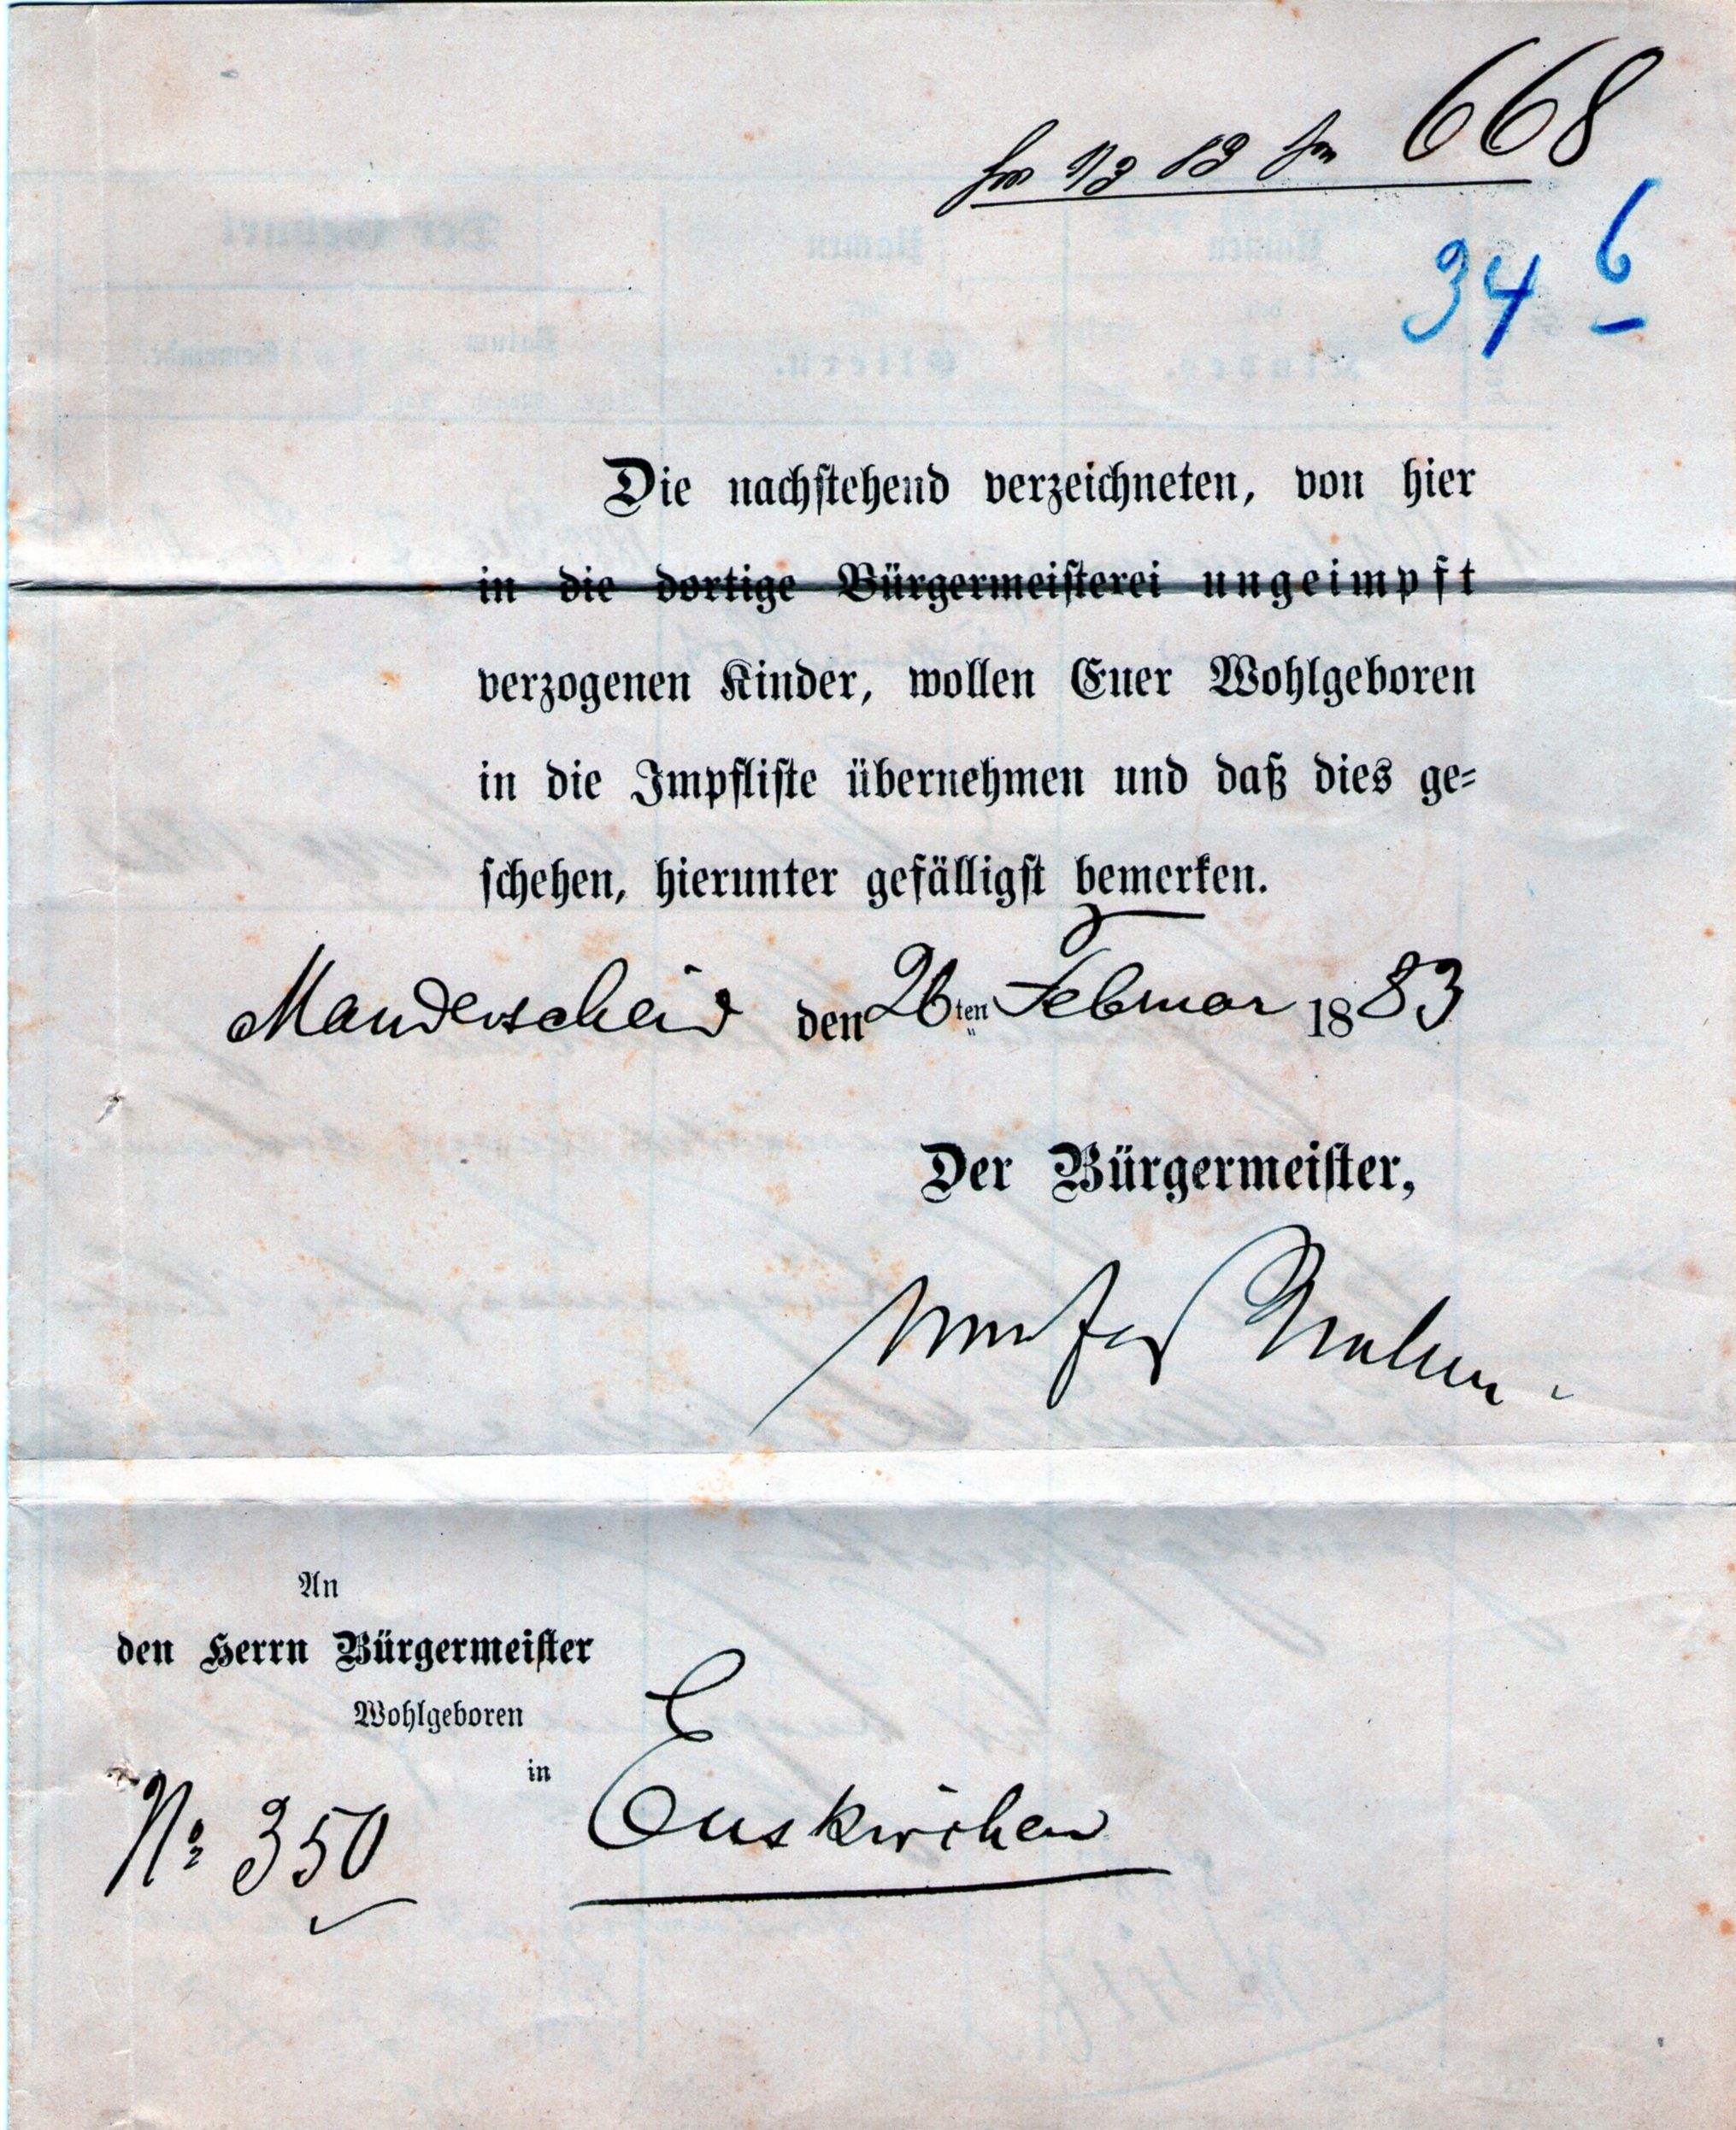 668
34 6
Die nachstehend verzeichneten, von hier
in die dortige Bürgermeisterei ungeimpft
verzogenen Kinder, wollen Euer Wohlgeboren
in die Impfliste übernehmen und daß dies ge=
schehen, hierunter gefälligst bemerken.
Manderscheid den 26ten Februar 1883
Der Bürgermeister,
An
den Herrn Bürgermeister
Wohlgeboren
in
Euskirchen
No 350